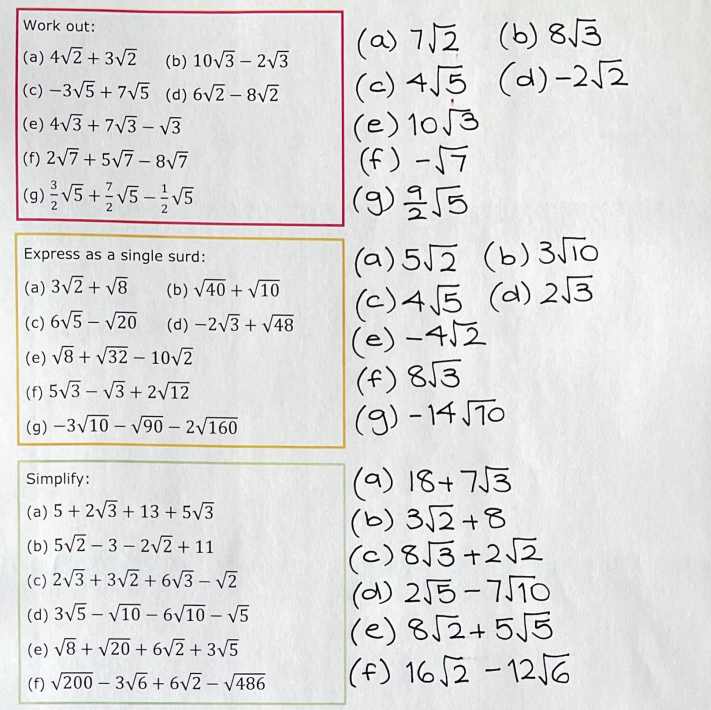 Work out:
(a) 4√2 + 3√2 (b) 10√3 − 2√3
(c) −3√5 + 7√5 (d) 6√2 − 8√2
(e) 4√3 + 7√3 − √3
(f) 2√7 + 5√7 − 8√7
(g) 3/2 √5 + 7/2 √5 − 1/2 √5
(a) 7√2 (b) 8√3
(c) 4√5 (d) −2√2
(e) 10√3
(f) −√7
(g) 9/2 √5
Express as a single surd:
(a) 3√2 + √8 (b) √40 + √10
(c) 6√5 − √20 (d) −2√3 + √48
(e) √8 + √32 − 10√2
(f) 5√3 − √3 + 2√12
(g) −3√10 − √90 − 2√160
(a) 5√2 (b) 3√10
(c) 4√5 (d) 2√3
(e) −4√2
(f) 8√3
(g) −14√10
Simplify:
(a) 5 + 2√3 + 13 + 5√3
(b) 5√2 − 3 − 2√2 + 11
(c) 2√3 + 3√2 + 6√3 − √2
(d) 3√5 − √10 − 6√10 − √5
(e) √8 + √20 + 6√2 + 3√5
(f) √200 − 3√6 + 6√2 − √486
(a) 18 + 7√3
(b) 3√2 + 8
(c) 8√3 + 2√2
(d) 2√5 − 7√10
(e) 8√2 + 5√5
(f) 16√2 − 12√6